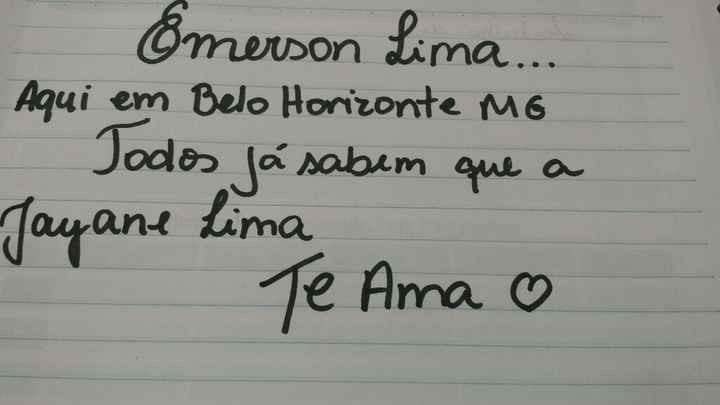 Emerson Lima...
Aqui em Belo Horizonte MG
Todos já sabem que a
Jayane Lima
Te Ama ♡